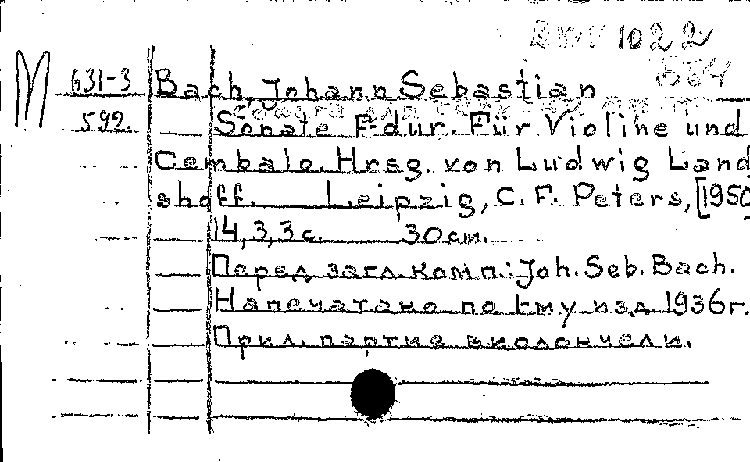 BWV 1022
М 631-3 Bach, Johann Sebastian
592. Sonate F-dur. Für Violine und
Cembalo. Hrsg. von Ludwig Land
shoff. Leipzig, C. F. Peters, [1950
14, 3, 3 с. 30 см.
Перед загл. комп.: Joh. Seb. Bach.
Напечатано по 1му изд. 1936 г.
Прил. партия виолончели.